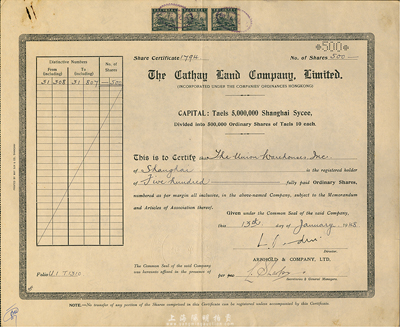 500
Share Certificate 1794 No. of Shares 500
The Cathay Land Company, Limited.
(INCORPORATED UNDER THE COMPANIES' ORDINANCES HONGKONG)
CAPITAL: Taels 5,000,000 Shanghai Sycee,
Divided into 500,000 Ordinary Shares of Taels 10 each.
Distinctive Numbers
No. of Shares
From (including)
To (including)
31 308 31 807 500
This is to Certify The Union Warehouses Inc
of Shanghai is the registered holder
of Five hundred fully paid Ordinary Shares,
numbered as per margin all inclusive, in the above-named Company, subject to the Memorandum
and Articles of Association thereof.
Given under the Common Seal of the said Company,
this 13th day of January
Director.
ARNHOLD & COMPANY, LTD.
The Common Seal of the said Company
was hereunto affixed in the presence of
per pro
Secretaries & General Managers.
Folio U.1.
NOTE.—No transfer of any portion of the Shares comprised in this Certificate can be registered unless accompanied by this Certificate.